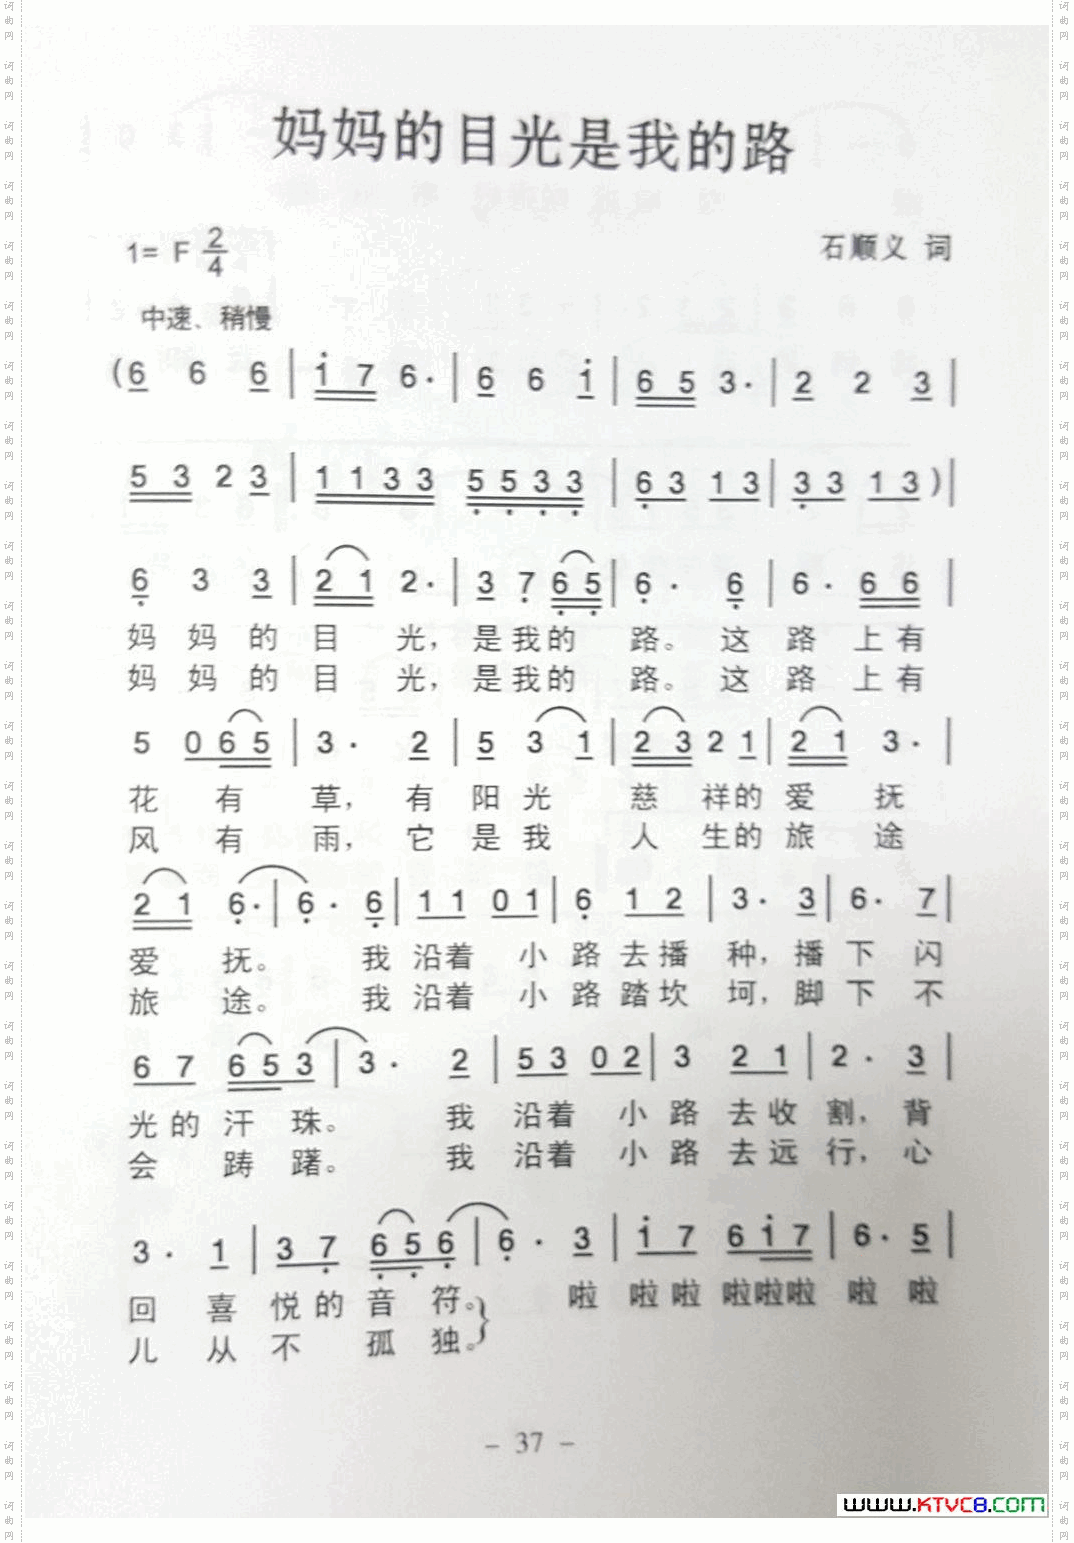 妈妈的目光是我的路
1= F 2/4
石顺义 词
中速、稍慢
(6 6 6 | 1 7 6· | 6 6 1 | 6 5 3· | 2 2 3 |
5 3 2 3 | 1 1 3 3 5 5 3 3 | 6 3 1 3 | 3 3 1 3 ) |
6 3 3 | 2 1 2· | 3 7 6 5 | 6· 6 | 6· 6 6 |
妈 妈 的 目 光, 是 我 的 路。 这 路 上 有
妈 妈 的 目 光, 是 我 的 路。 这 路 上 有
5 0 6 5 | 3· 2 | 5 3 1 | 2 3 2 1 | 2 1 3· |
花 有 草, 有 阳 光 慈 祥 的 爱 抚
风 有 雨, 它 是 我 人 生 的 旅 途
2 1 6· | 6· 6 | 1 1 0 1 | 6 1 2 | 3· 3 | 6· 7 |
爱 抚。 我 沿 着 小 路 去 播 种, 播 下 闪
旅 途。 我 沿 着 小 路 踏 坎 坷, 脚 下 不
6 7 6 5 3 | 3· 2 | 5 3 0 2 | 3 2 1 | 2· 3 |
光 的 汗 珠。 我 沿 着 小 路 去 收 割, 背
会 踌 躇。 我 沿 着 小 路 去 远 行, 心
3· 1 | 3 7 6 5 6 | 6· 3 | 1 7 6 1 7 | 6· 5 |
回 喜 悦 的 音 符。} 啦 啦 啦 啦 啦 啦 啦 啦
儿 从 不 孤 独。
– 37 –
www.KTVC8.com
词曲网